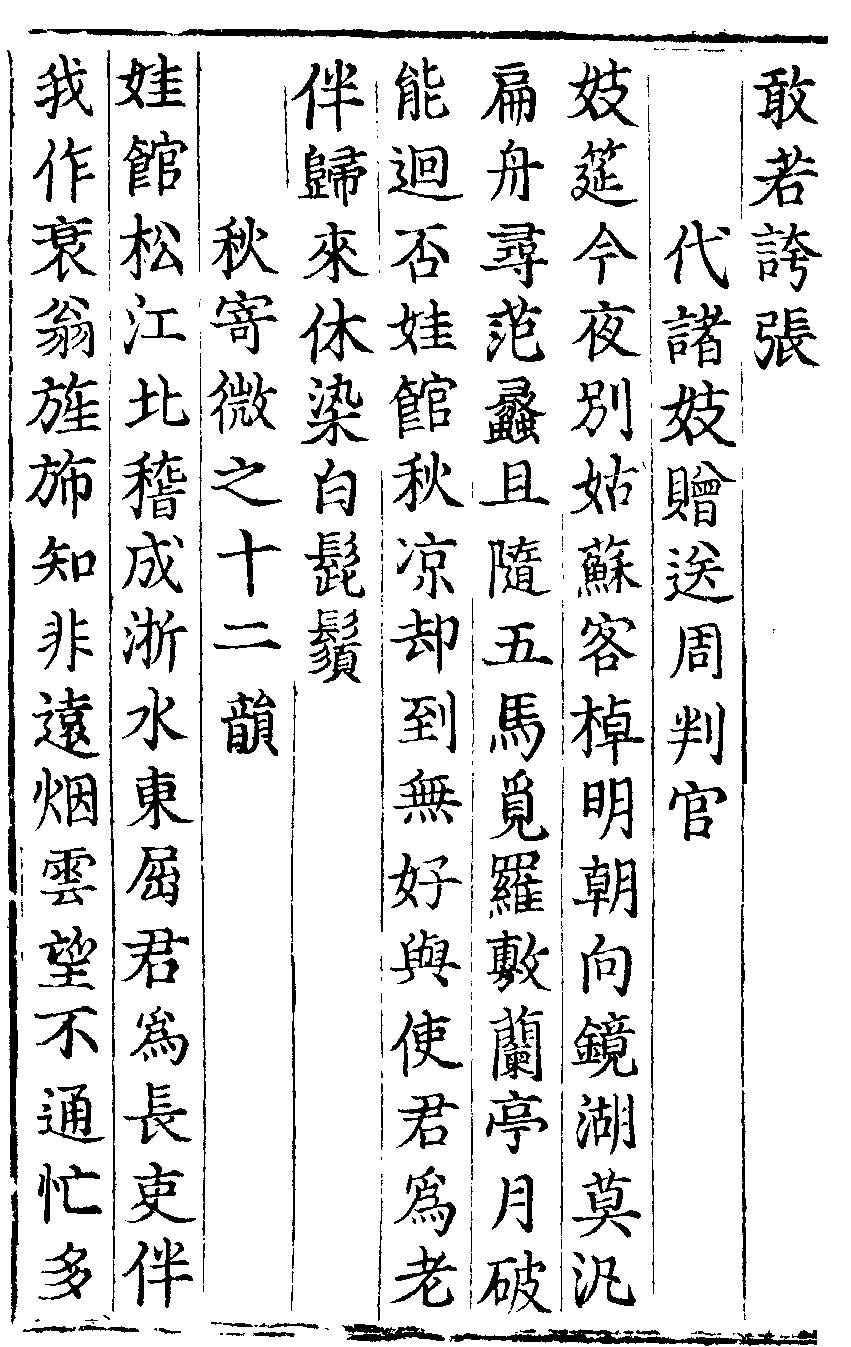 敢若誇張
代諸妓贈送周判官
妓筵今夜別姑蘇客棹明朝向鏡湖莫汎
扁舟尋范蠡且隨五馬覓羅敷蘭亭月破
能迴否娃館秋凉却到無好與使君爲老
伴歸來休染白髭鬚
秋寄微之十二韻
娃館松江北稽成浙水東屈君爲長吏伴
我作衰翁旌斾知非遠烟雲望不通忙多